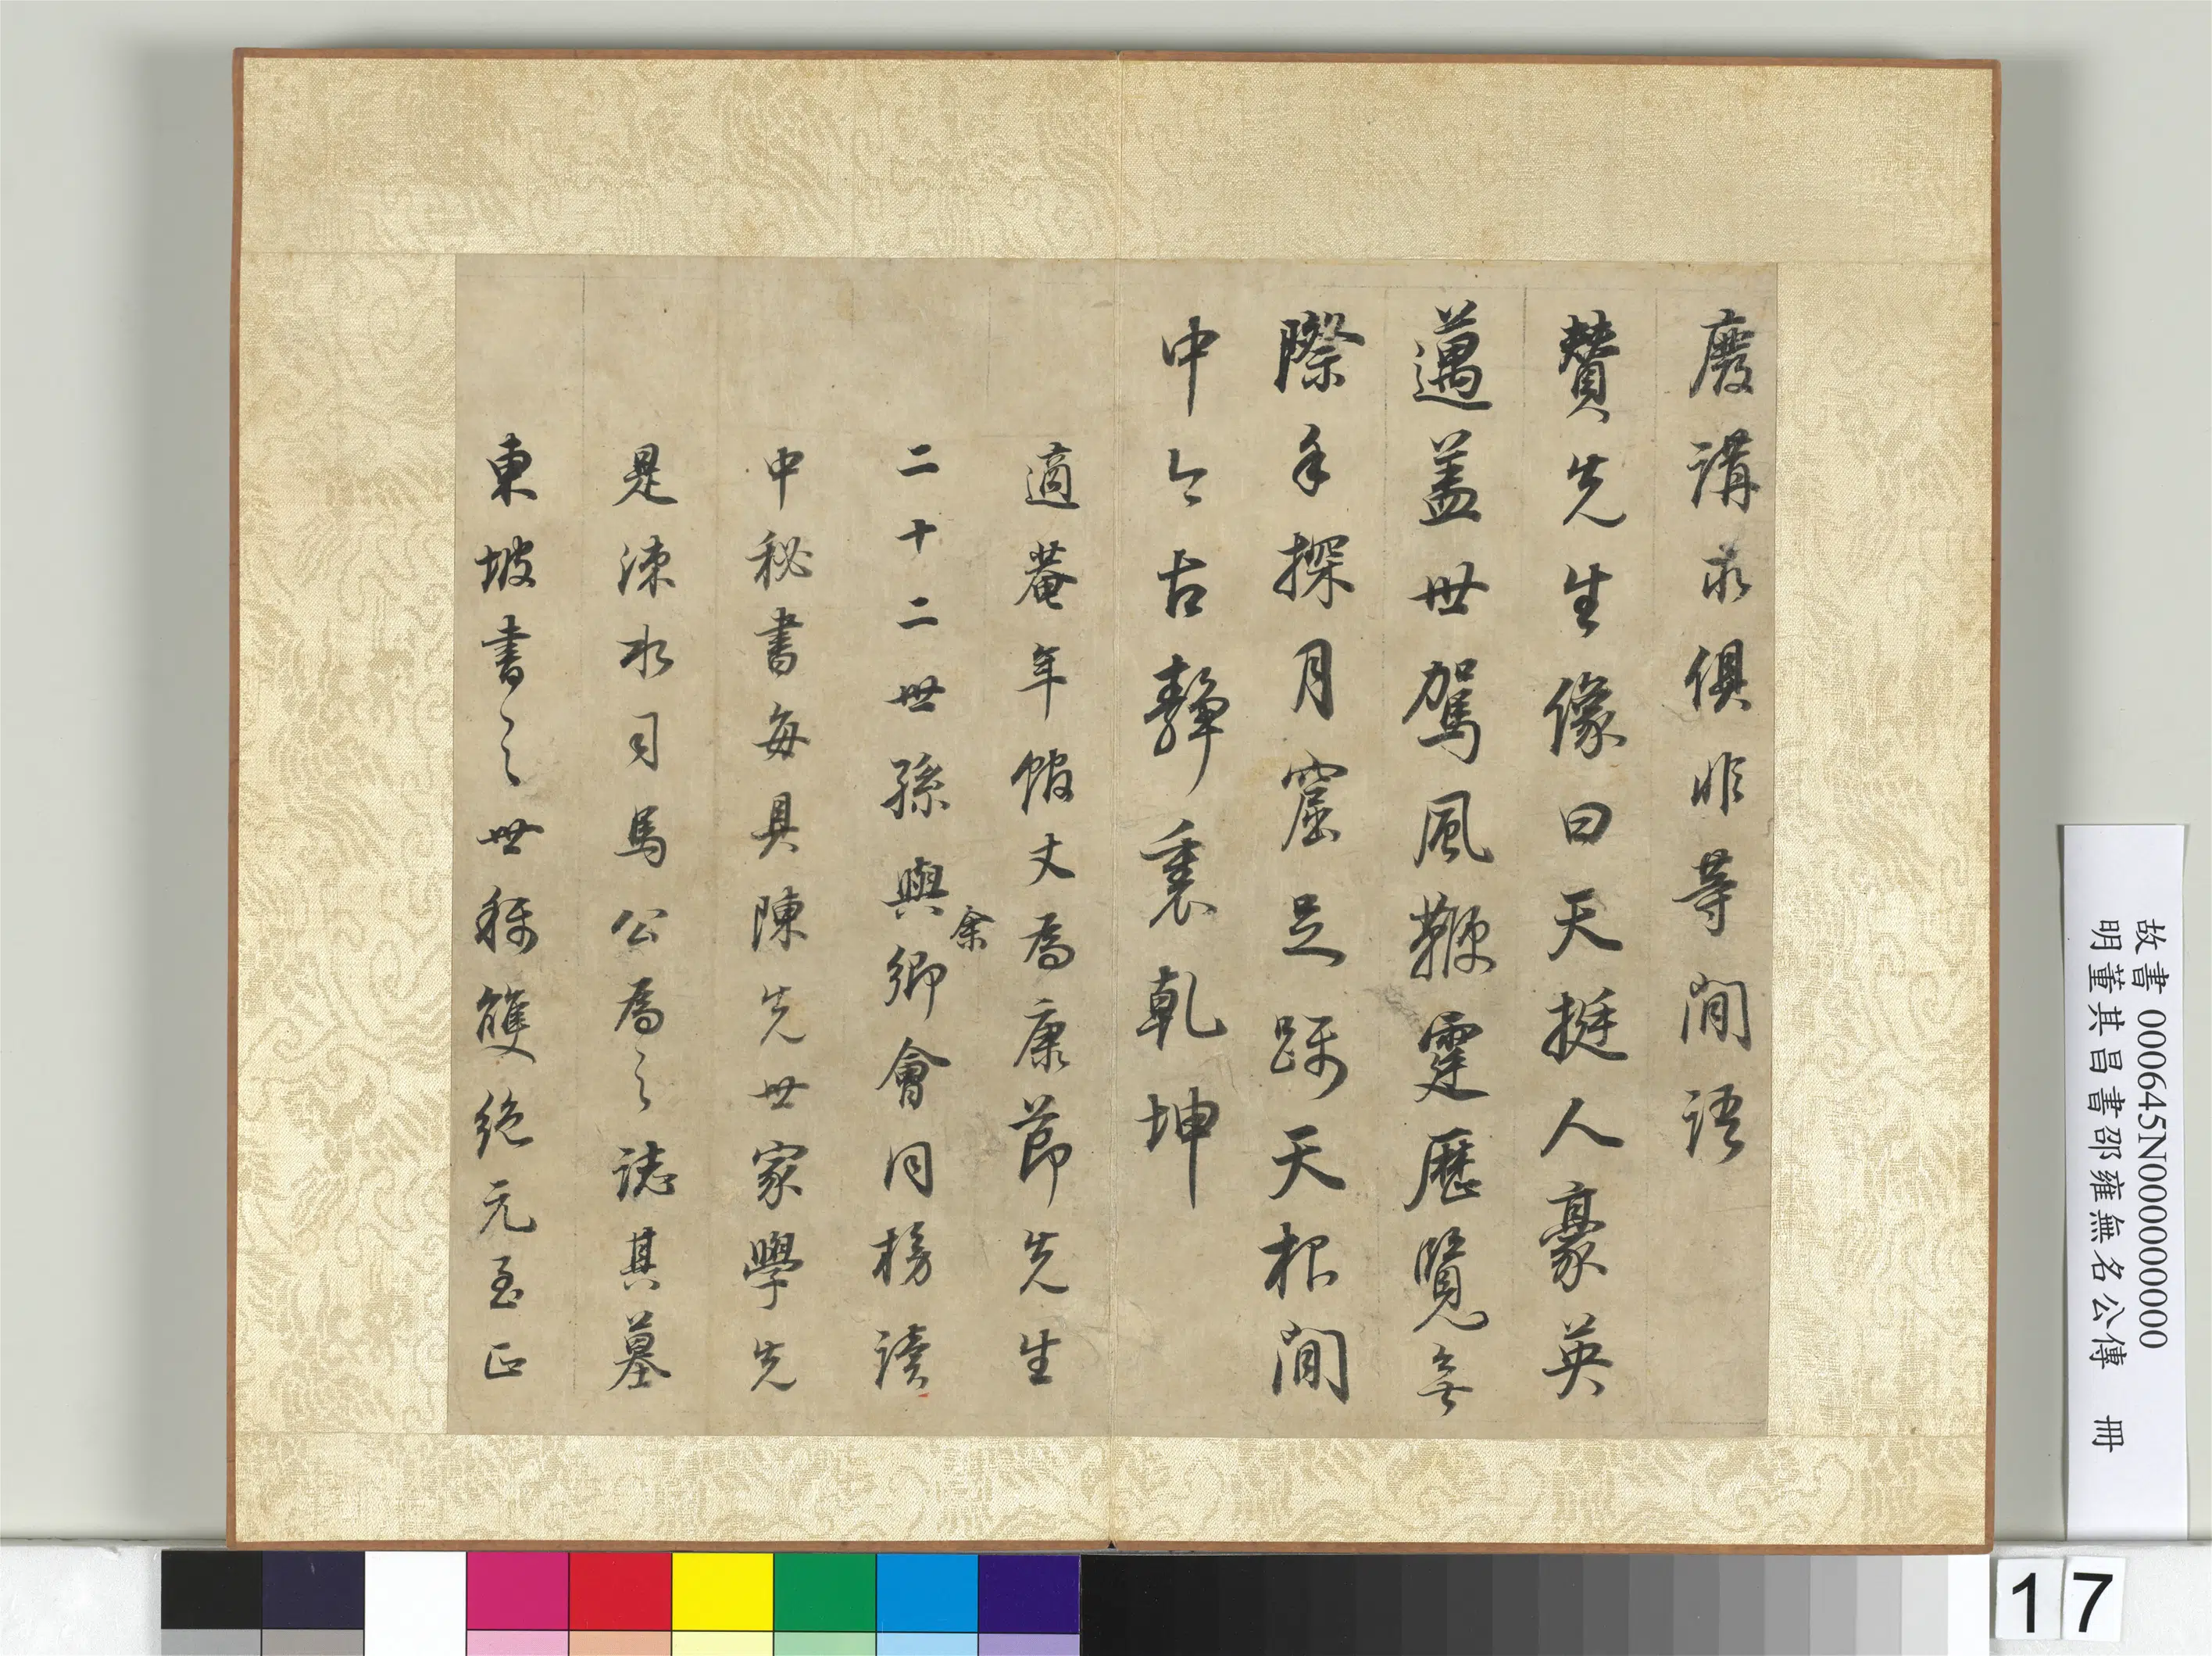 廢講求俱非等閒語
贊先生像曰天挺人豪英
邁蓋世駕風鞭霆歷覽無
際手探月窟足躡天根閒
中今古靜裏乾坤
適菴年館丈為康節先生
二十二世孫與余鄉會同榜讀
中秘書每具陳先世家學先
是涑水司馬公為之誌其墓
東坡書之世稱雙絕元至正
故書 000645N000000000
明董其昌書邵雍無名公傳 冊
17